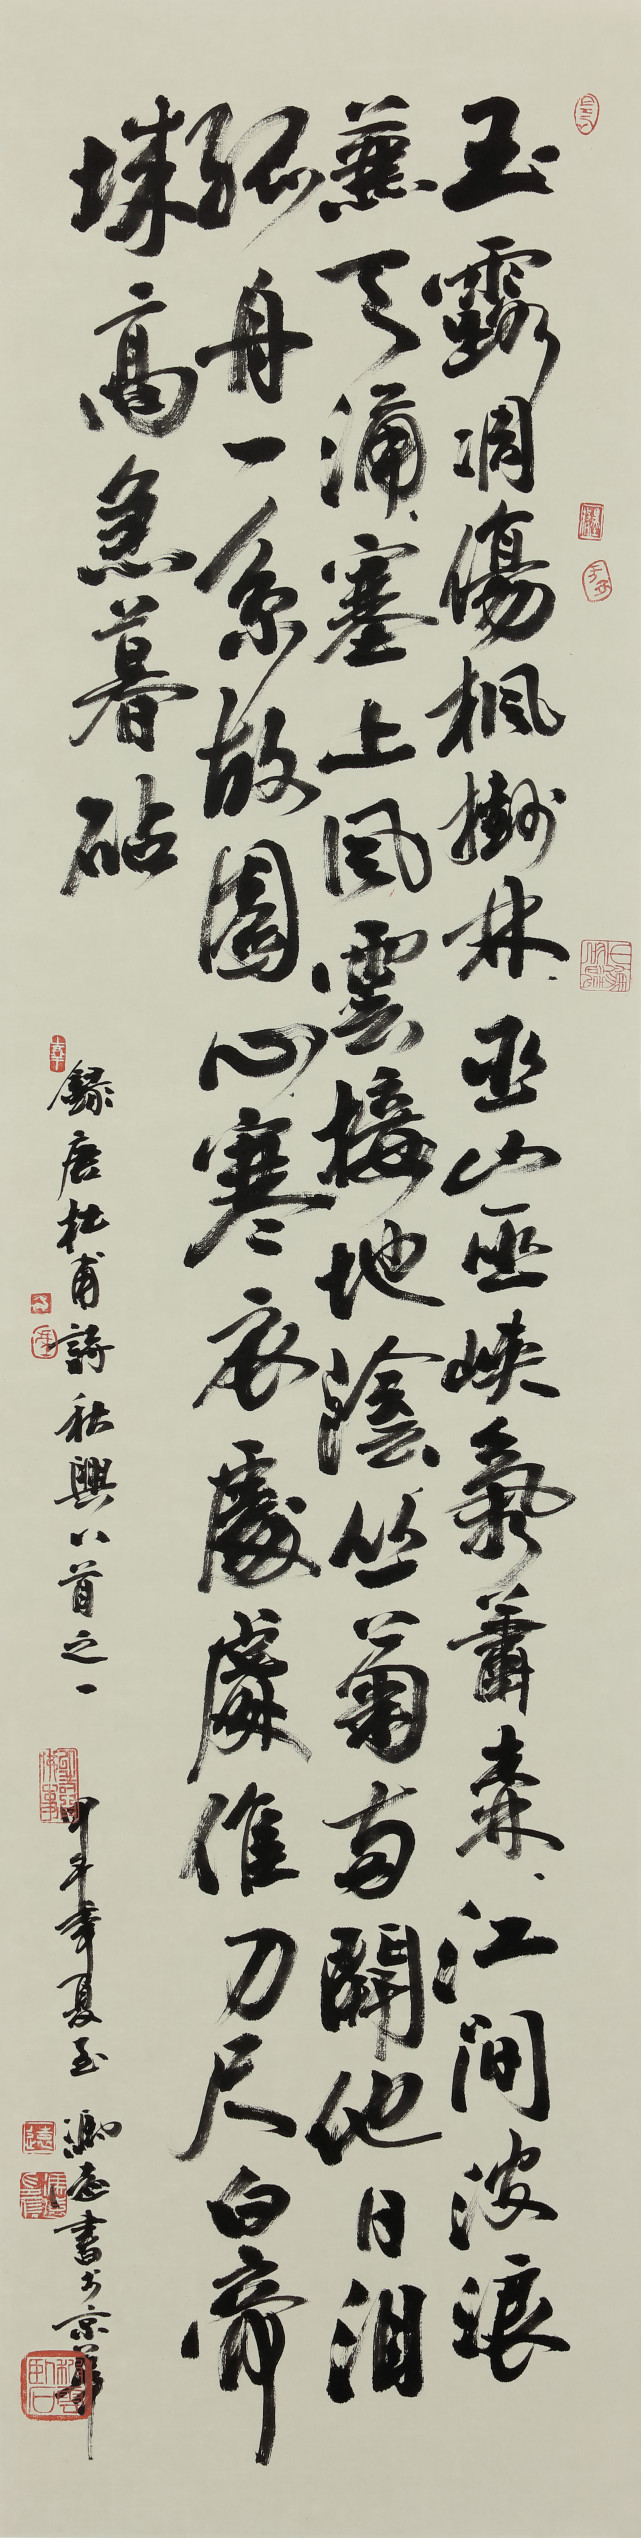 玉露凋傷楓樹林巫山巫峽氣蕭森江間波浪
兼天涌塞上風雲接地陰丛菊两開他日泪
孤舟一系故園心寒衣處處催刀尺白帝
城高急暮砧
錄唐杜甫詩秋興八首之一 甲午年夏至 書於京華